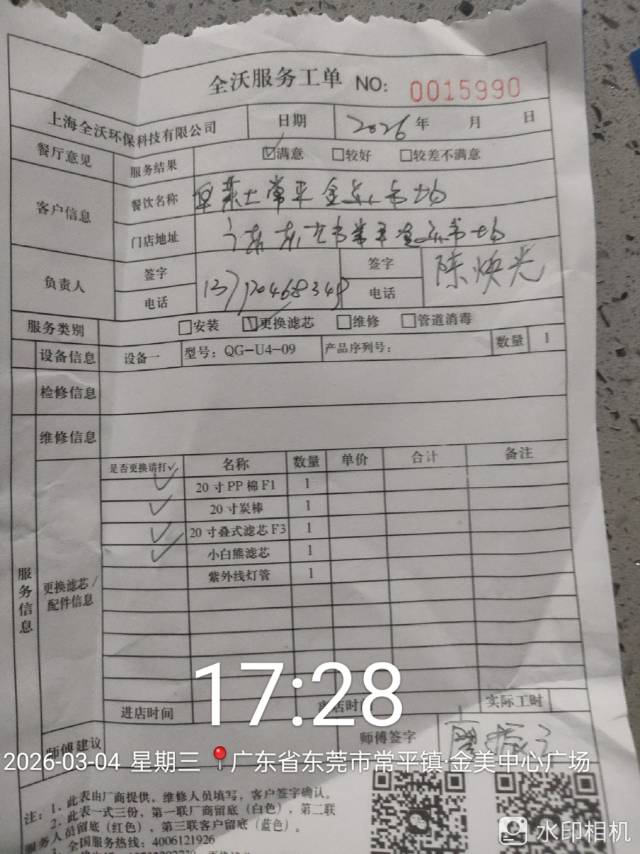 全沃服务工单 NO: 0015990
上海全沃环保科技有限公司 日期 2026年 月 日
餐厅意见 服务结果 ☑满意 □较好 □较差不满意
客户信息 餐饮名称 常平金美广场
门店地址 广东东莞市常平金美广场
负责人 签字 签字 陈焕光
电话 13710468348 电话
服务类别 □安装 ☑更换滤芯 □维修 □管道消毒
设备信息 设备一 型号: QG-U4-09 产品序列号: 数量 1
检修信息
维修信息
服务信息
更换滤芯/配件信息
是否更换请打✓ 名称 数量 单价 合计 备注
✓ 20寸PP棉F1 1
✓ 20寸炭棒 1
✓ 20寸叠式滤芯F3 1
✓ 小白熊滤芯 1
紫外线灯管 1
进店时间 店时 实际工时
师傅建议 师傅签字
17:28
2026-03-04 星期三 广东省东莞市常平镇·金美中心广场
注: 1、此表由厂商提供，维修人员填写，客户签字确认。
2、此表一式三份，第一联厂商留底（白色），第二联
服务人员留底（红色），第三联客户留底（蓝色）。
3、全国服务热线: 4006121926
水印相机